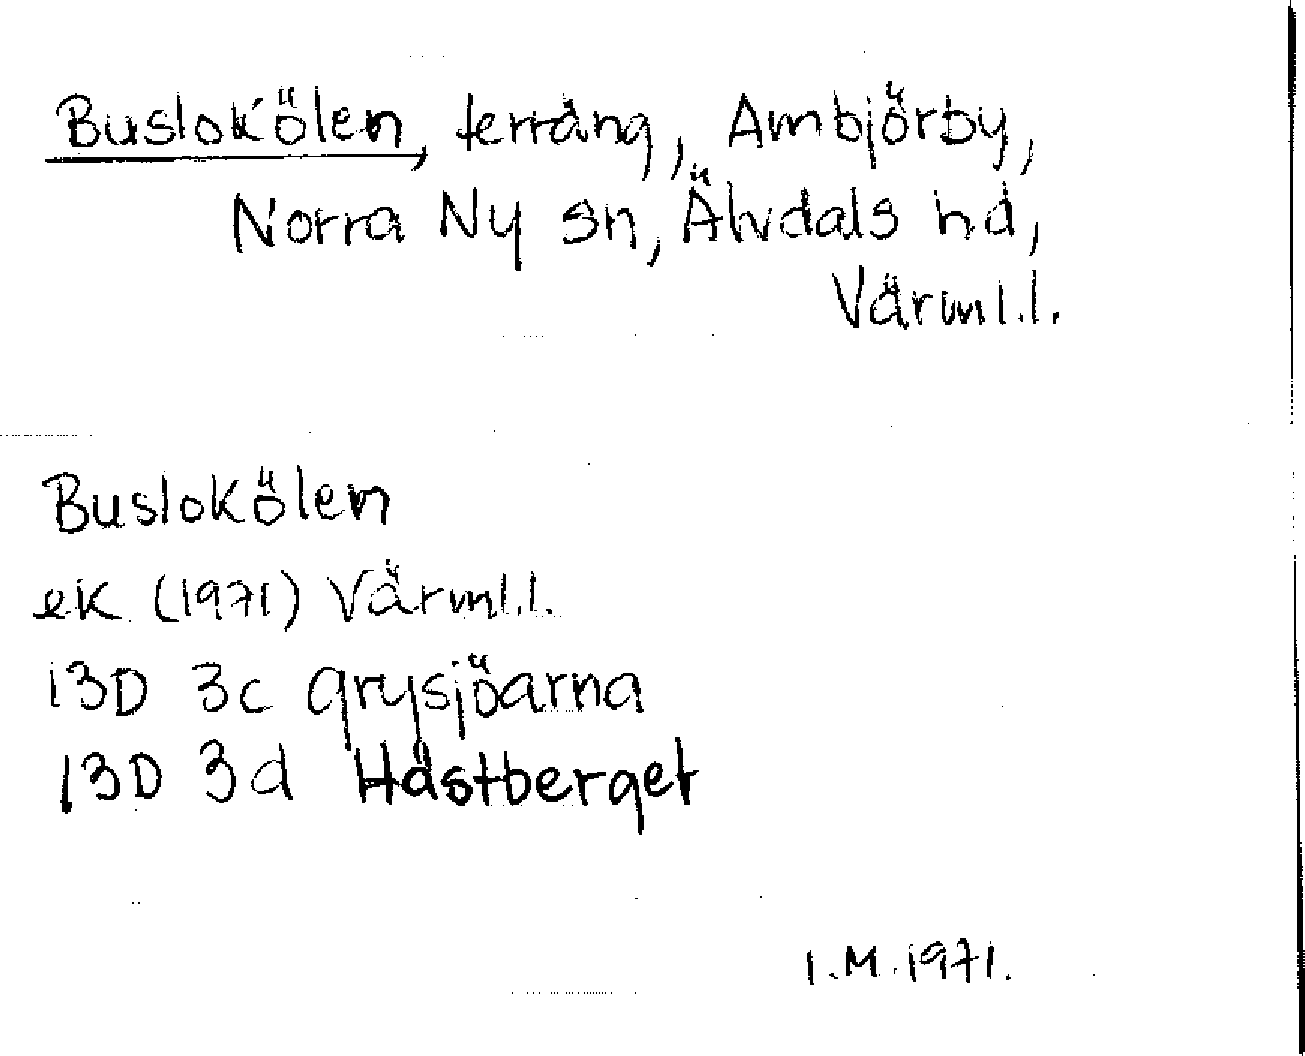 Buslokölen, terräng, Ambjörby,
Norra Ny sn, Älvdals hd,
Värml.l.
Buslokölen
ek (1971) Värml.l.
13D 3c Grysjöarna
13D 3d Hästberget
I.M. 1971.